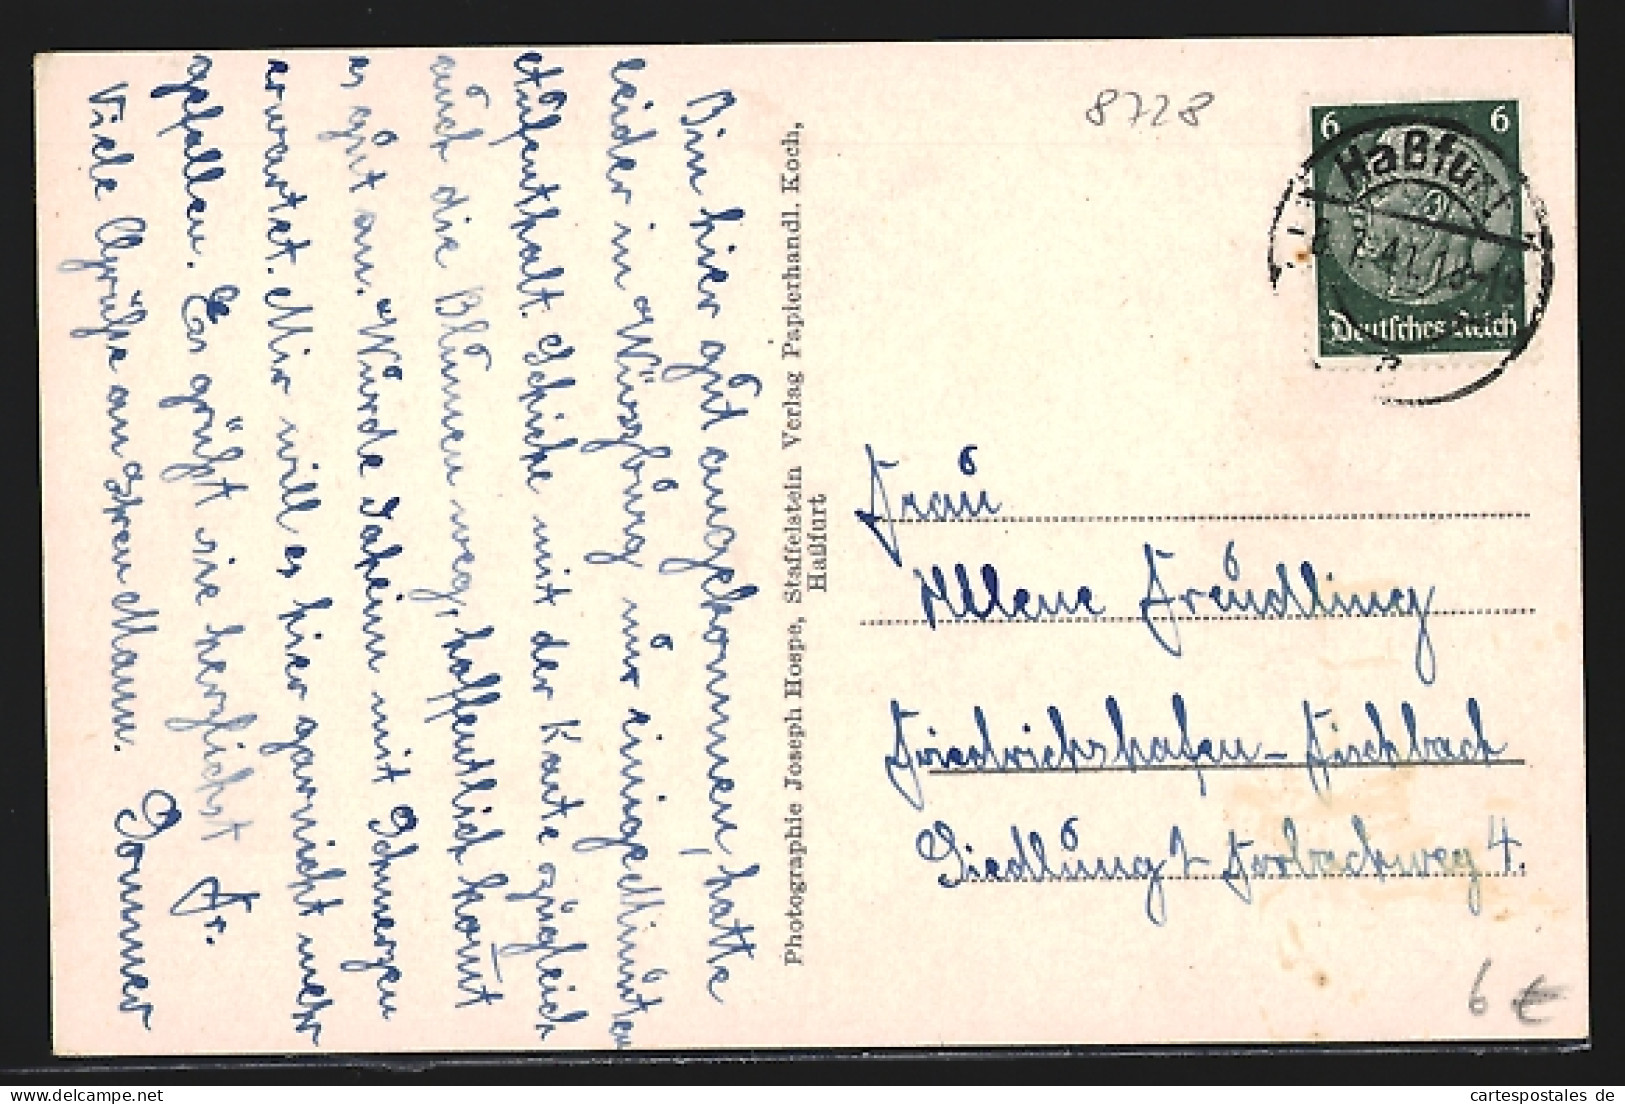 Bin hier gut angekommen, hatte
leider in Würzburg nur einige Minuten
Aufenthalt. Schicke mit der Karte zugleich
auch die Blumen weg, hoffentlich kom̅t
es gut an. Würde Daheim mit Schmerzen
erwartet. Mir will es hier garnicht mehr
gefallen. Es grüßt sie herzlichst Fr.
Viele Grüße an Ihren Mann. Sommer
Photographie Joseph Hospe, Staffelstein Verlag Papierhandl. Koch,
Haßfurt
8728
6 6
Haßfurt
Deutsches Reich
Frau
Helene Freudling
Friedrichshafen-Fischbach
Siedlung 2 Forbachweg 4.
6 €
cartespostales de